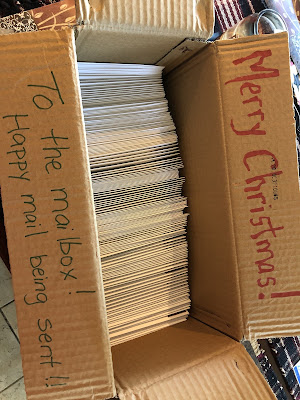 To the mailbox!
Happy mail being sent!!
Merry Christmas!